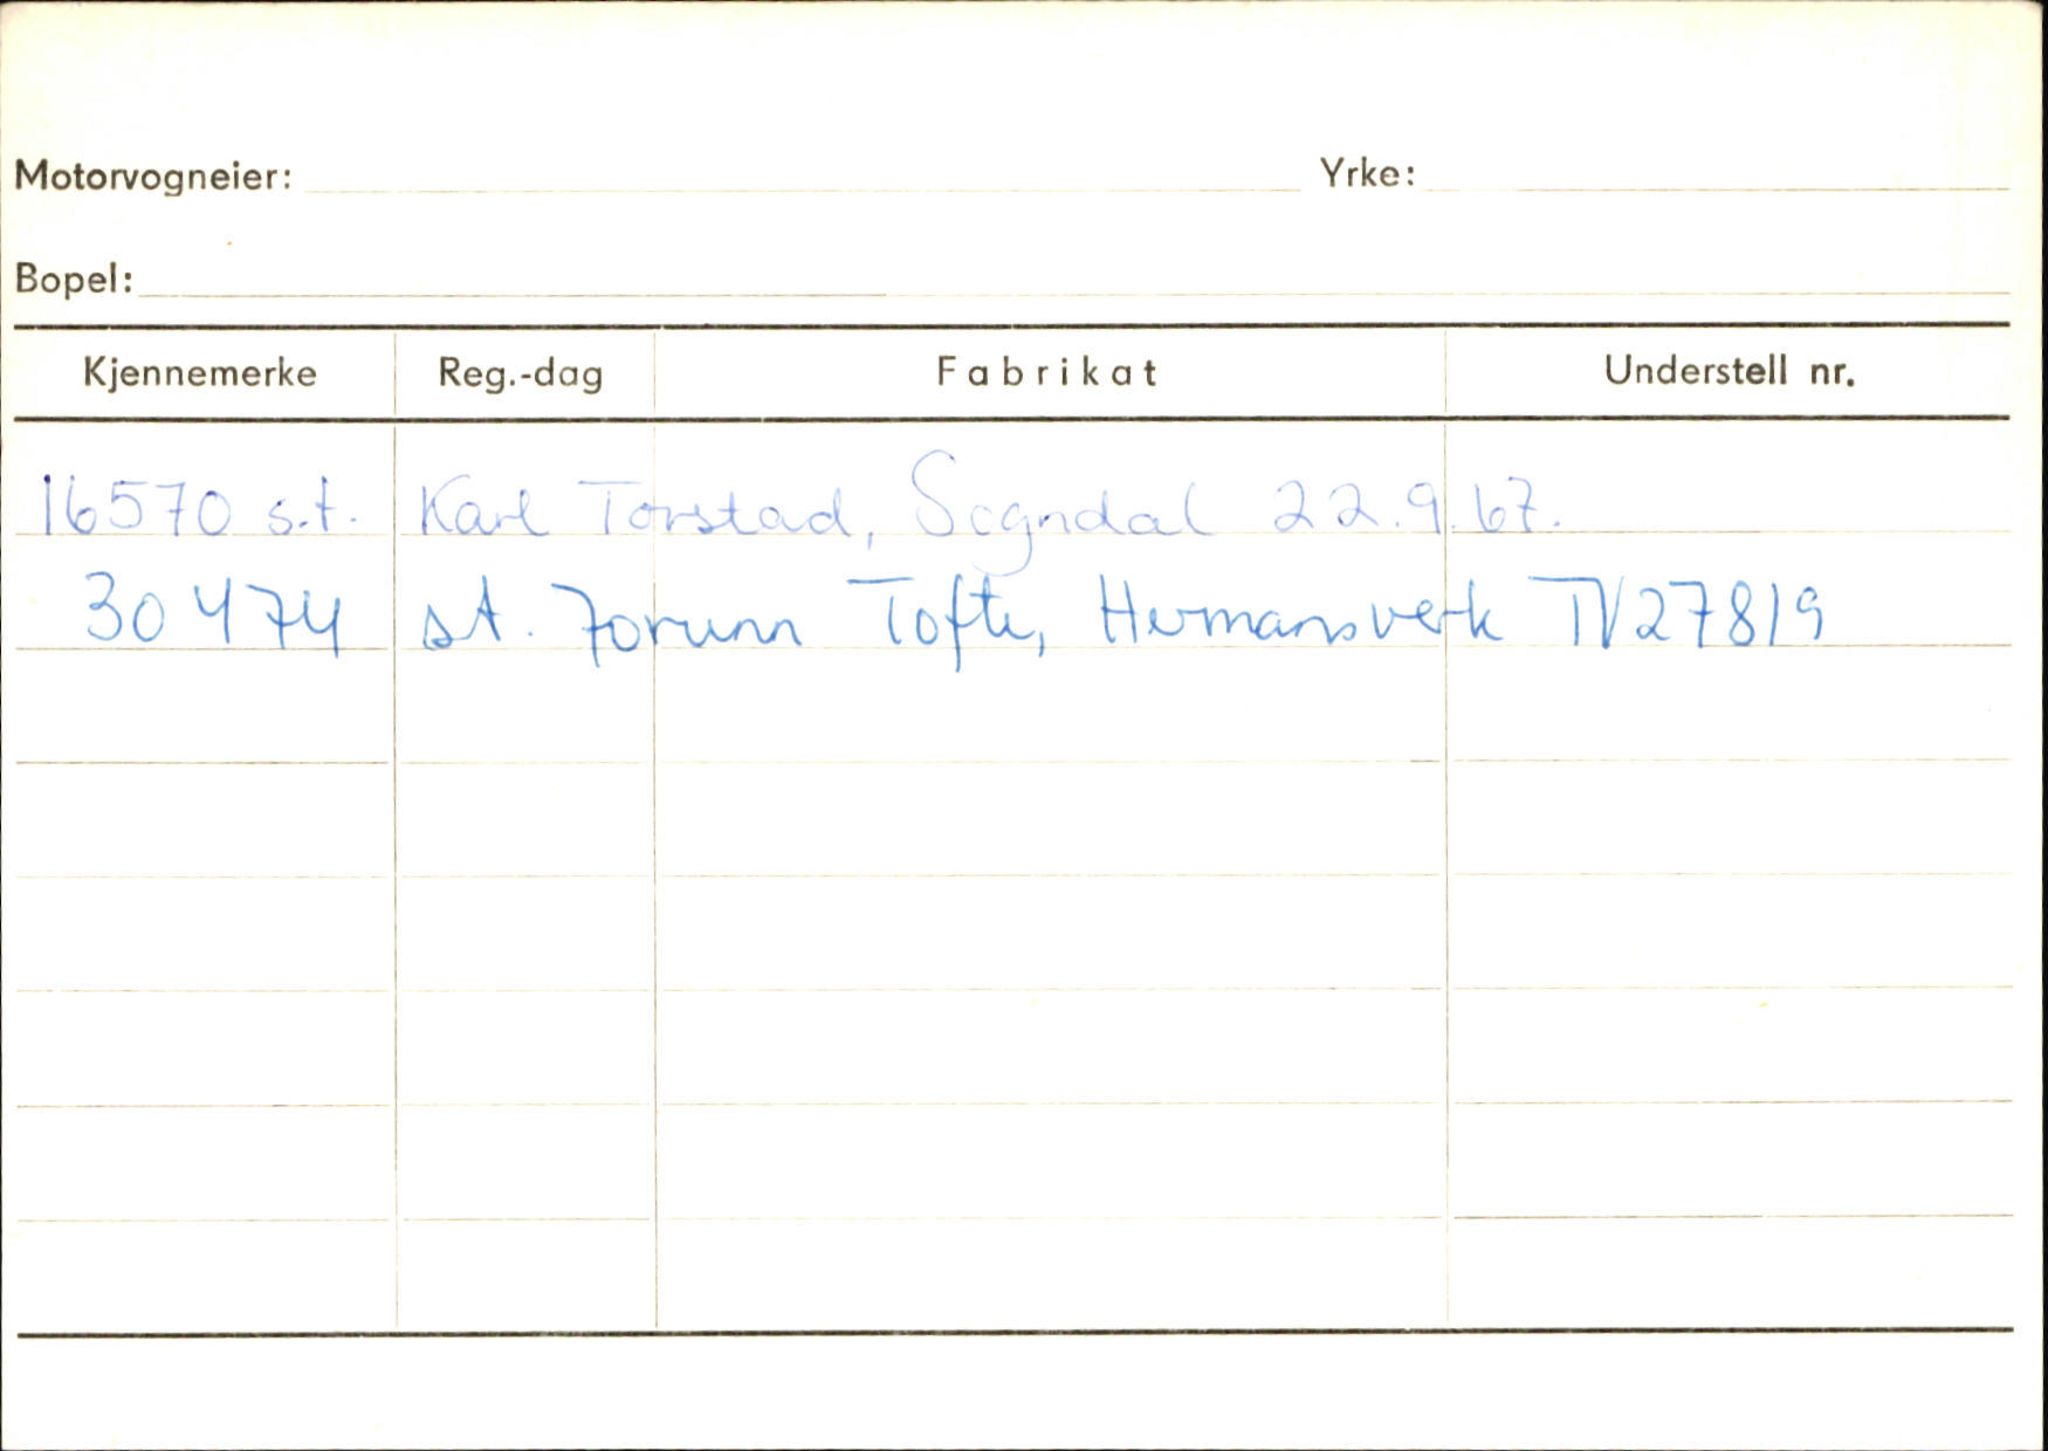 Motorvogneier: Yrke:
Bopel:
Kjennemerke Reg.-dag Fabrikat Understell nr.
16570 s.t. Karl Torstad, Sogndal 22.9.67.
30474 st. Jorunn Tofte, Hermansverk TV27819